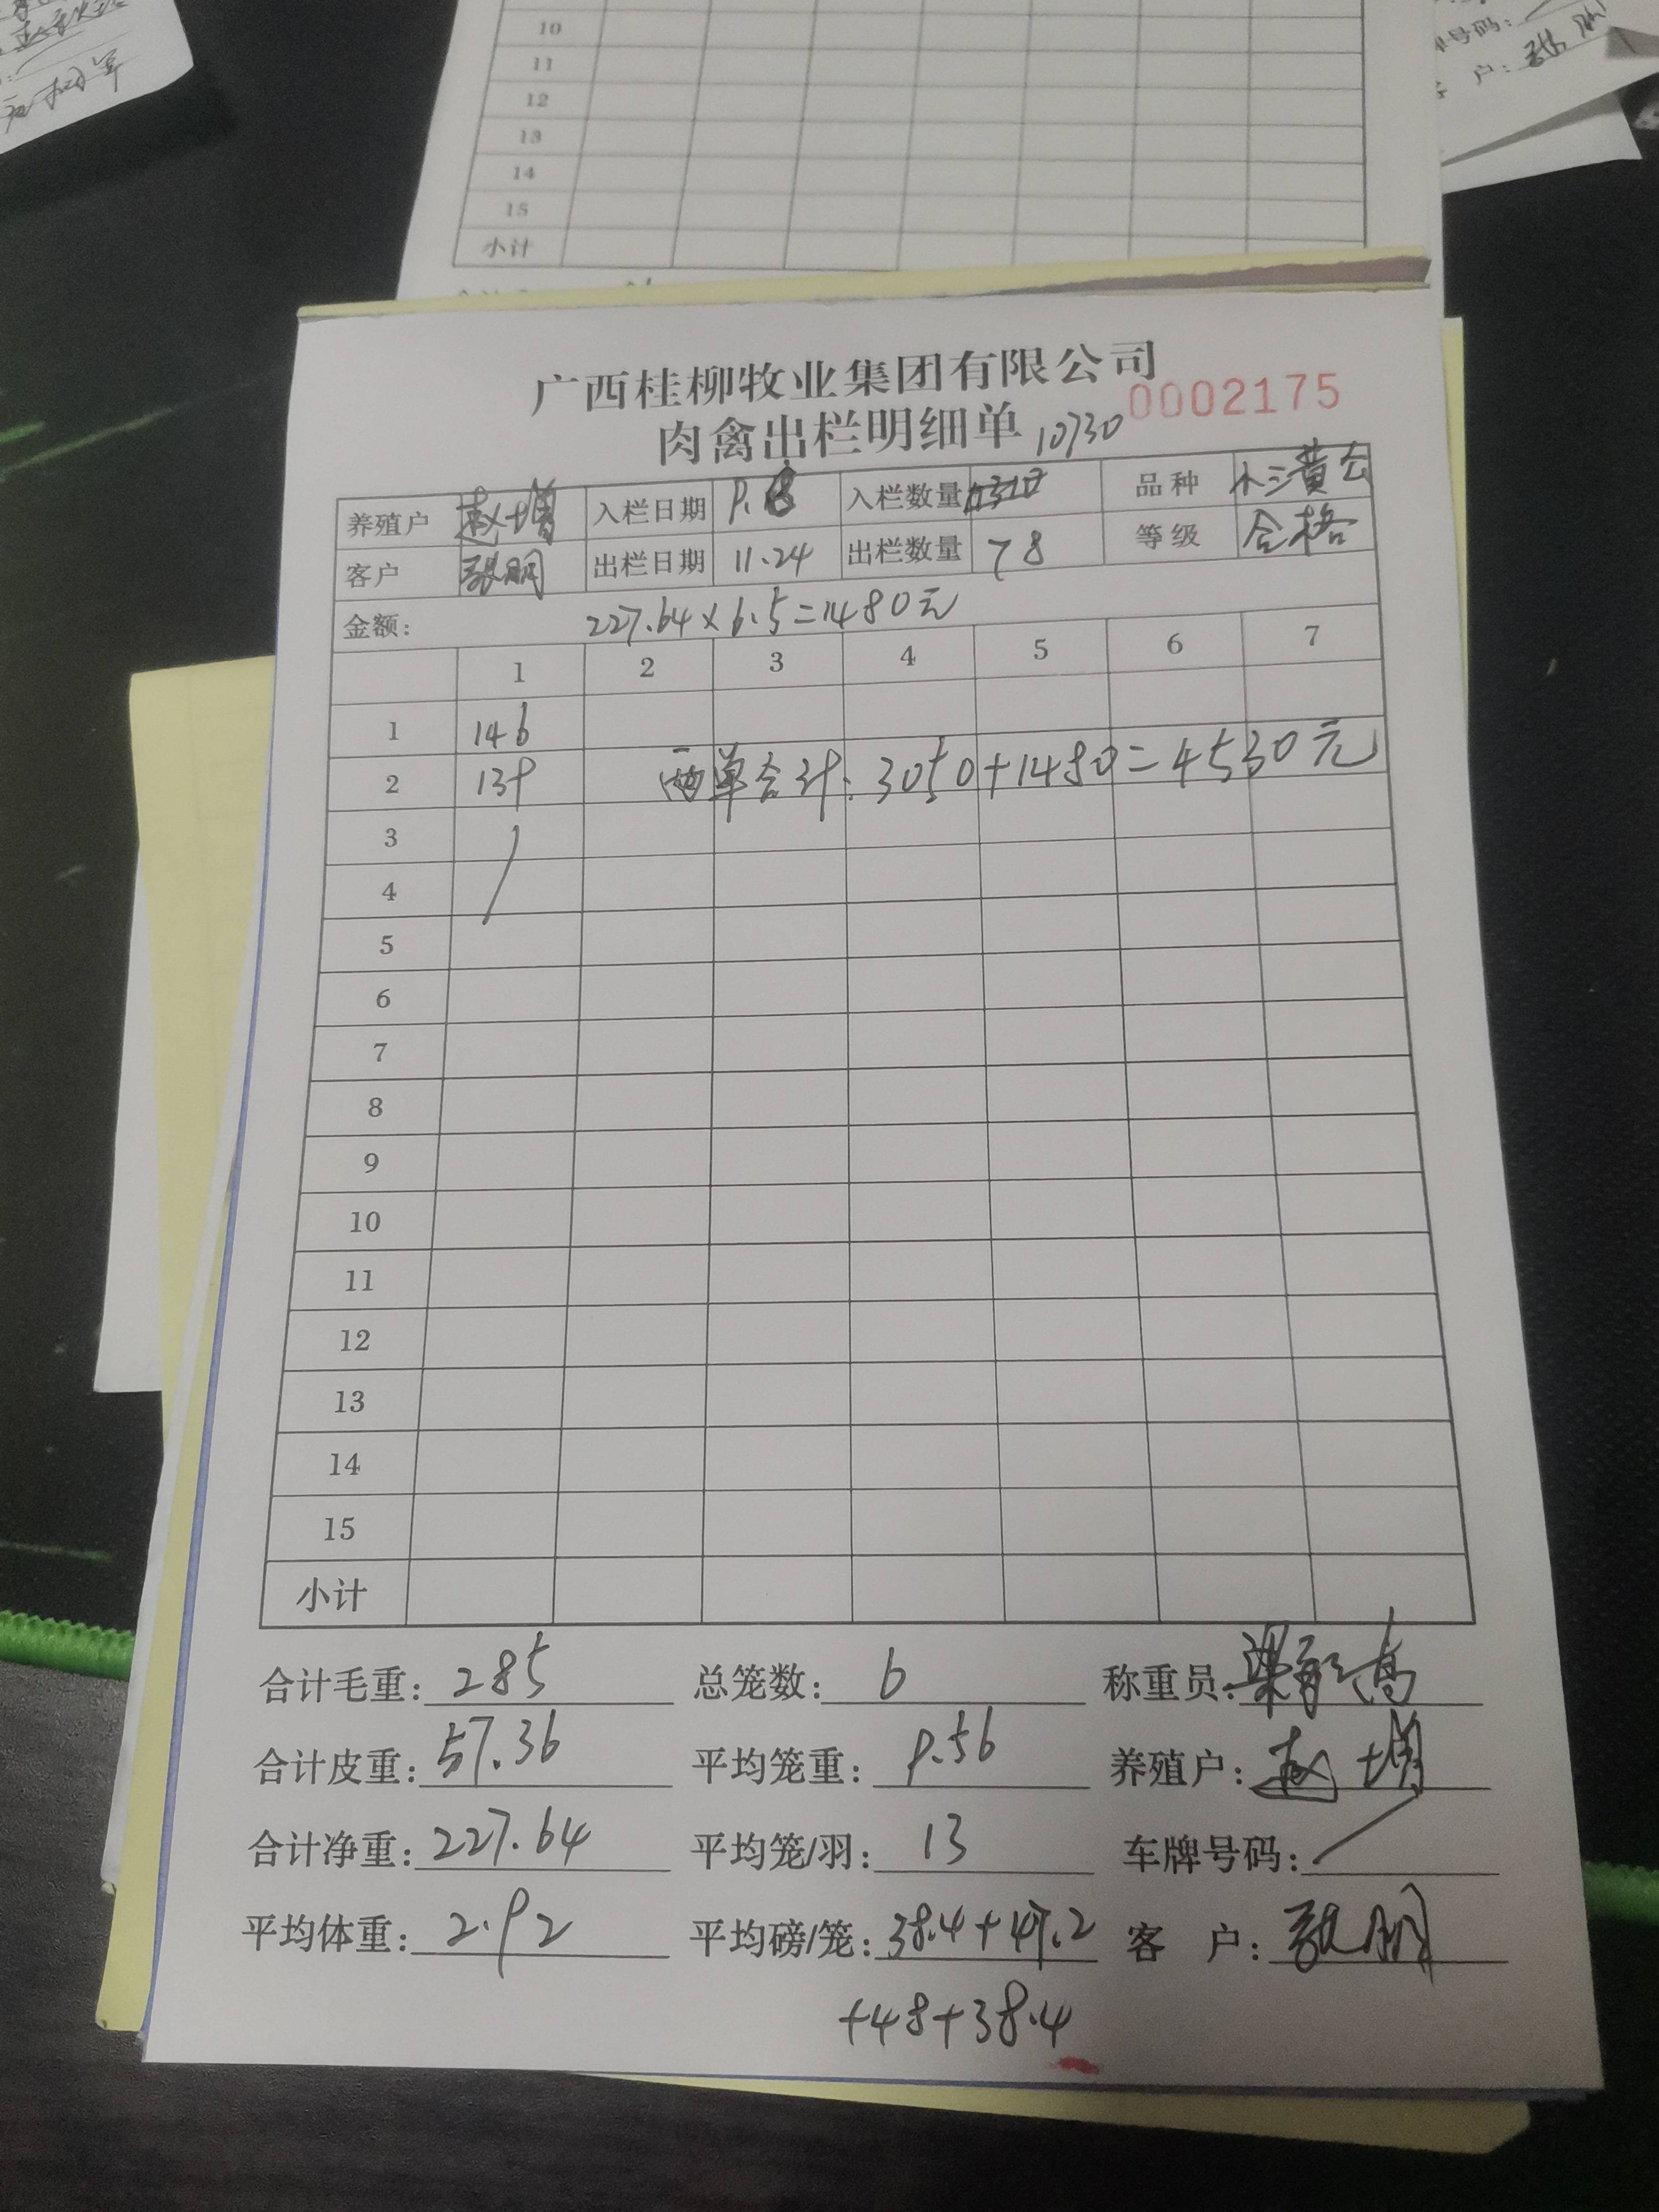 10
11
12
13
14
15
小计
号码：
户：
广西桂柳牧业集团有限公司
0002175
肉禽出栏明细单 10730
养殖户 赵增 入栏日期 9. 入栏数量 品种 水三黄公
客户 张朋 出栏日期 11.24 出栏数量 78 等级 合格
金额： 227.64×6.5=1480元
1 2 3 4 5 6 7
1 146
2 139 两单合计：3050+1480=4530元
3
4
5
6
7
8
9
10
11
12
13
14
15
小计
合计毛重：285 总笼数：6 称重员：
合计皮重：57.36 平均笼重：9.56 养殖户：赵增
合计净重：227.64 平均笼/羽：13 车牌号码：/
平均体重：2.92 平均磅/笼：38.4+47.2 客 户：张朋
+48+38.4